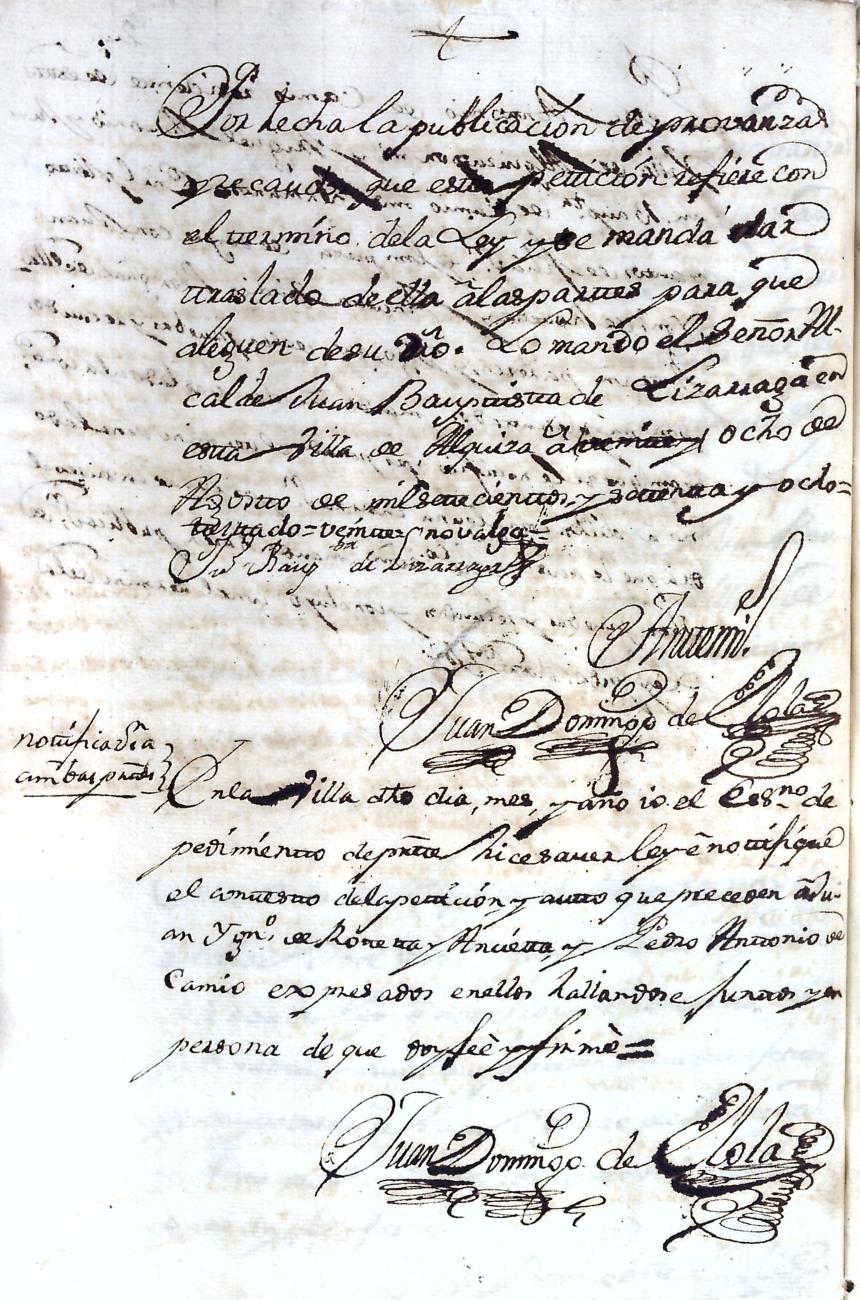 Por hecha la publicación de provanzas
y recaudos que esta petición refiere con
el termino de la Ley y se manda dar
traslado de ella â las partes para que
aleguen de su dro. Lo mando el Señor Al-
calde Juan Bauptista de Lizarraga en
esta Villa de Alquiza â veinte y ocho de
Agosto de mil setecientos y setenta y ocho=
testado=veinte y no valga=
Jn Baup.ta de Lizarraga
Antemi.
Juan Domingo de Elola
notificazn â
ambas partes
En la Villa dho dia, mes, y año io el Esno de
pedimiento de parte hice saver ley ê notifiqué
el contesto de la petición y autto que preceden â Ju-
an Ygno. de Roneta y Ancieta, y Pedro Antonio de
Camio expresados en ellos hallandose juntos y en
persona de que doy feè y firmè=
Juan Domingo de Elola